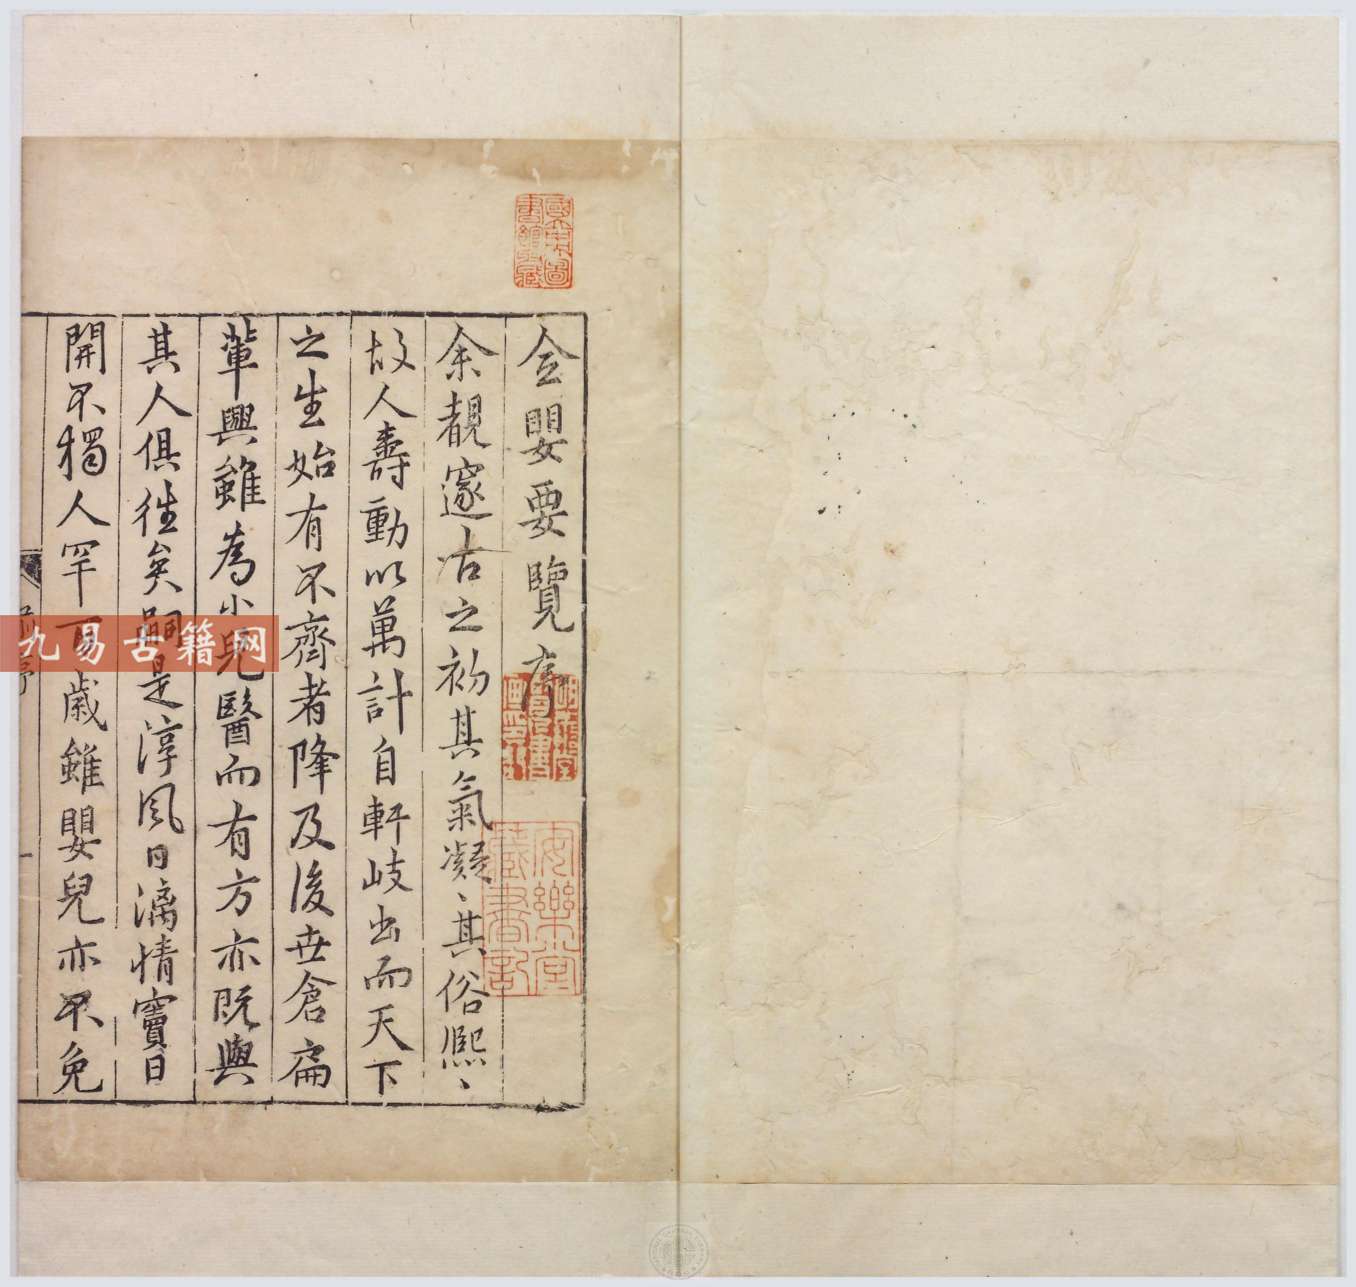 全嬰要覽序
余覩邃古之初其氣凝〻其俗熙〻
故人壽動以萬計自軒岐出而天下
之生始有不齊者降及後世倉扁
輩興雖為小兒醫而有方亦既與
其人俱往矣嗣是淳風日漓情竇日
開不獨人罕百歲雖嬰兒亦不免
國立中央圖書館收藏
安樂堂藏書記
九易古籍网